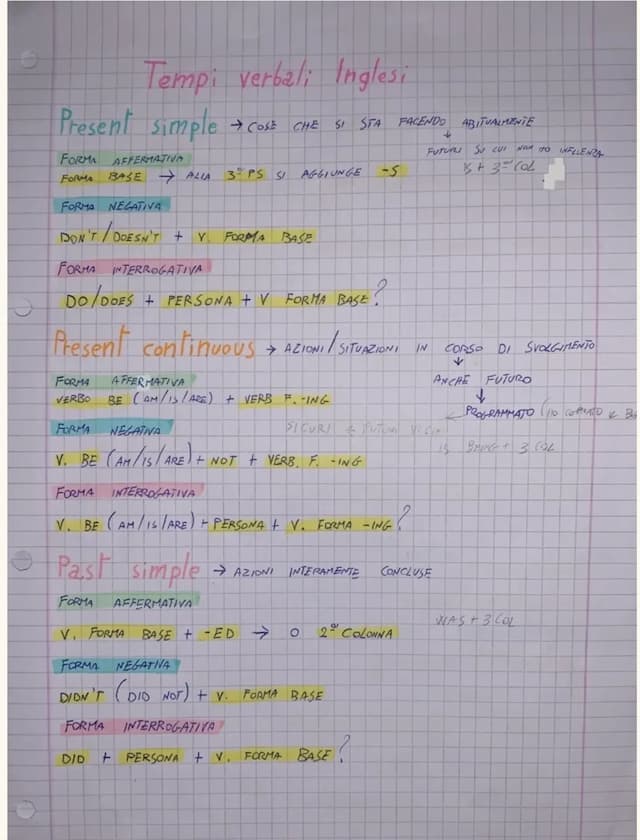 Tempi verbali Inglesi
Present simple → COSE CHE SI STA FACENDO ABITUALMENTE
↓
FORMA AFFERMATIVA
FUTURI SU CUI NON HO INFLUENZA
FORMA BASE → ALLA 3ª PS SI AGGIUNGE -S
+ 3ª COL
FORMA NEGATIVA
DON'T/DOESN'T + V. FORMA BASE
FORMA INTERROGATIVA
DO/DOES + PERSONA + V FORMA BASE?
Present continuous → AZIONI/SITUAZIONI IN CORSO DI SVOLGIMENTO
↓
FORMA AFFERMATIVA
ANCHE FUTURO
VERBO BE (AM/IS/ARE) + VERB F. -ING
↓
PROGRAMMATO (IO
FORMA NEGATIVA
SICURI
IS BEING + 3 COL
V. BE (AM/IS/ARE) + NOT + VERB. F. -ING
FORMA INTERROGATIVA
V. BE (AM/IS/ARE) + PERSONA + V. FORMA -ING?
Past simple → AZIONI INTERAMENTE CONCLUSE
FORMA AFFERMATIVA
WAS + 3 COL
V. FORMA BASE + -ED → O 2ª COLONNA
FORMA NEGATIVA
DIDN'T (DID NOT) + V. FORMA BASE
FORMA INTERROGATIVA
DID + PERSONA + V. FORMA BASE?